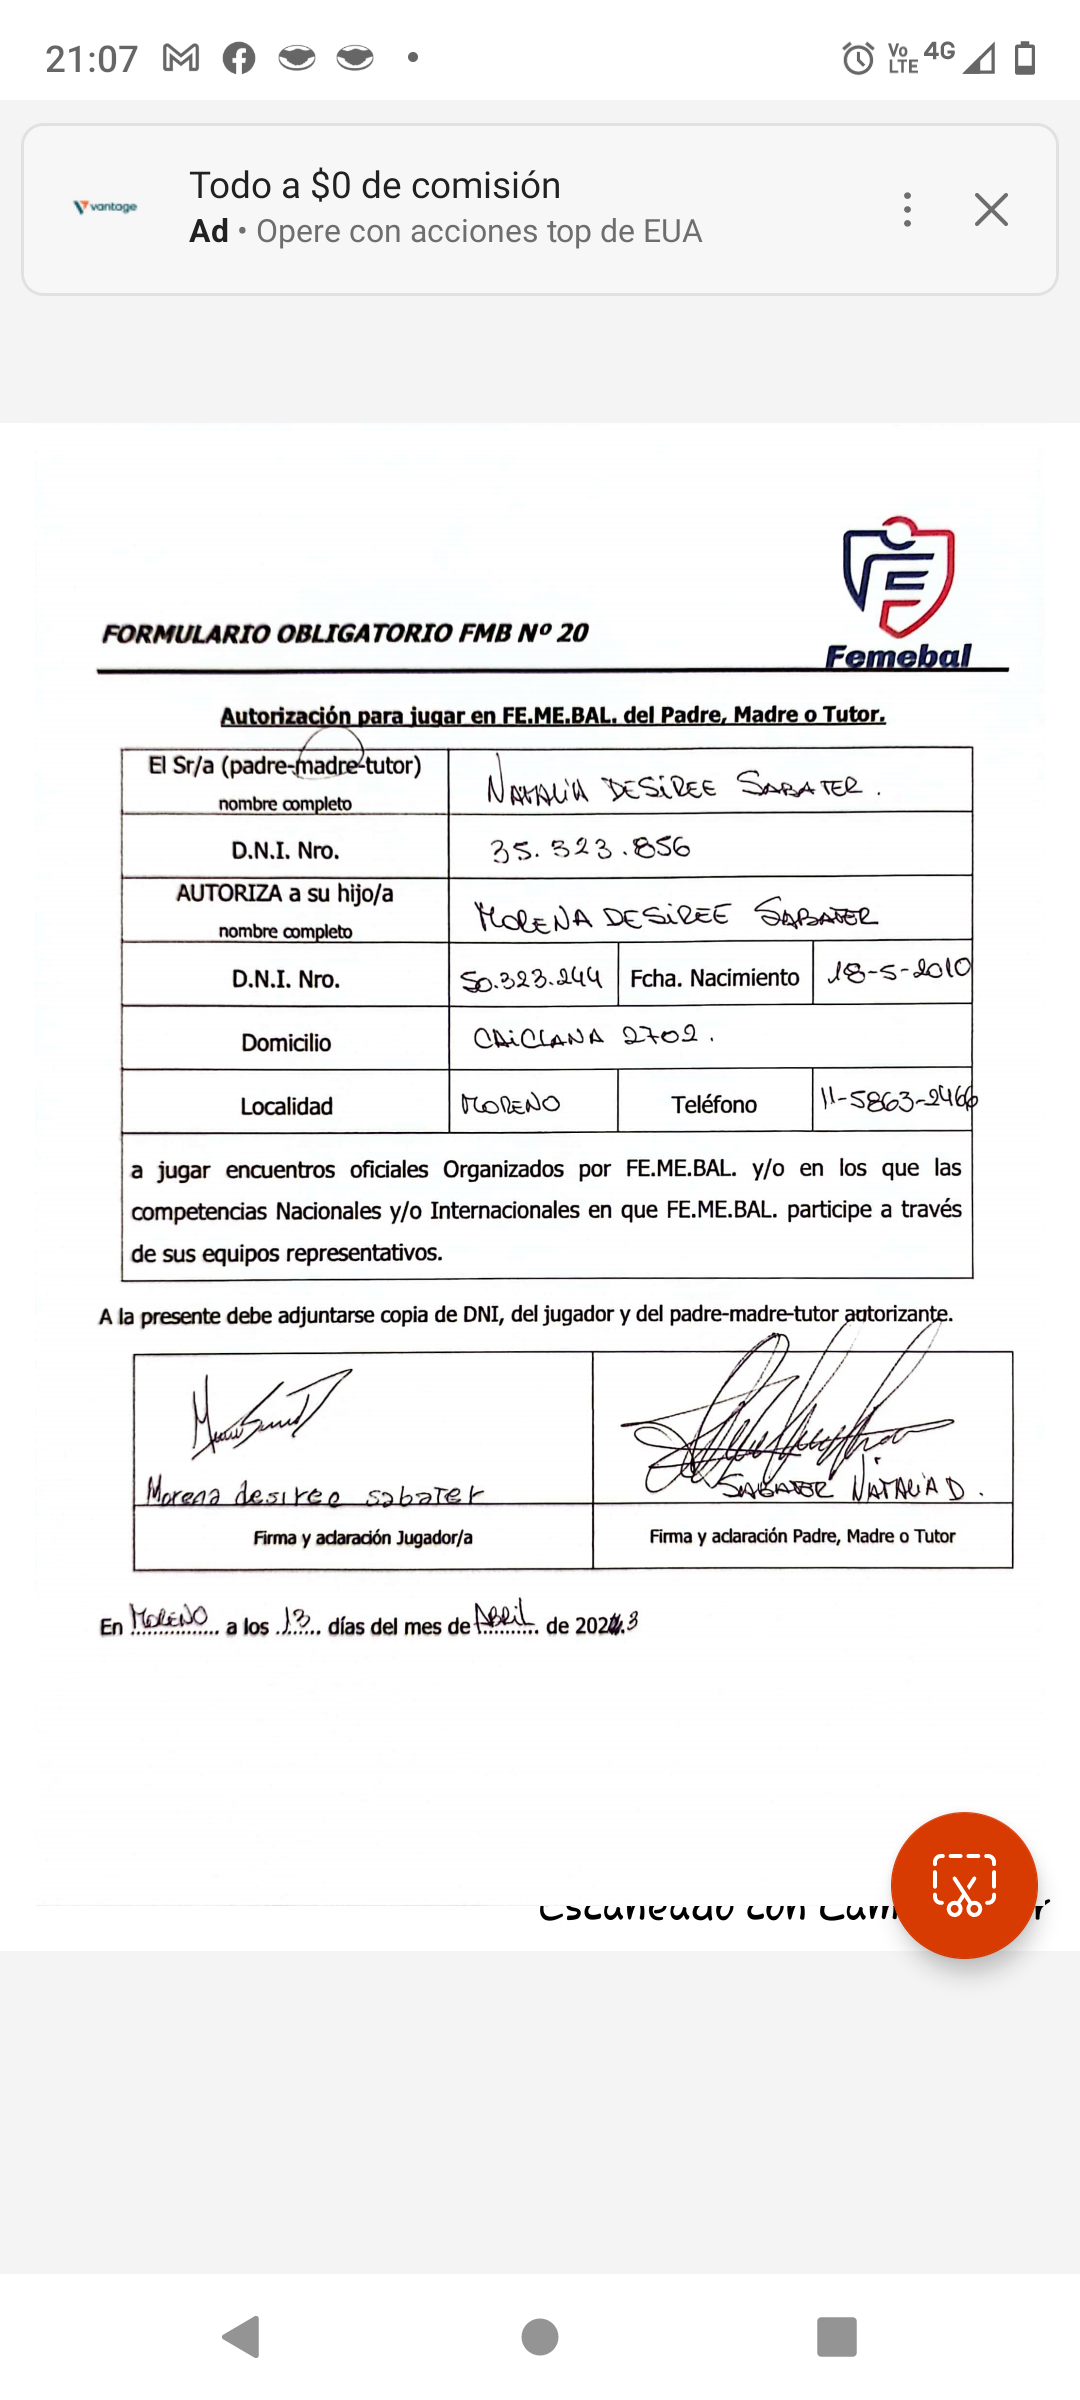 21:07
Vo LTE 4G
vantage
Todo a $0 de comisión
Ad • Opere con acciones top de EUA
Femebal
FORMULARIO OBLIGATORIO FMB Nº 20
Autorización para jugar en FE.ME.BAL. del Padre, Madre o Tutor.
El Sr/a (padre-madre-tutor) nombre completo
NATALIA DESIREE SABATER.
D.N.I. Nro. 35.323.856
AUTORIZA a su hijo/a nombre completo
MORENA DESIREE SABATER
D.N.I. Nro. 50.323.244 Fcha. Nacimiento 18-5-2010
Domicilio CAICLANA 2702.
Localidad MORENO Teléfono 11-5863-2466
a jugar encuentros oficiales Organizados por FE.ME.BAL. y/o en los que las
competencias Nacionales y/o Internacionales en que FE.ME.BAL. participe a través
de sus equipos representativos.
A la presente debe adjuntarse copia de DNI, del jugador y del padre-madre-tutor autorizante.
Morena desiree sabater
SABATER NATALIA D.
Firma y aclaración Jugador/a
Firma y aclaración Padre, Madre o Tutor
En MORENO a los 13 días del mes de ABRIL de 2023
Escaneado con